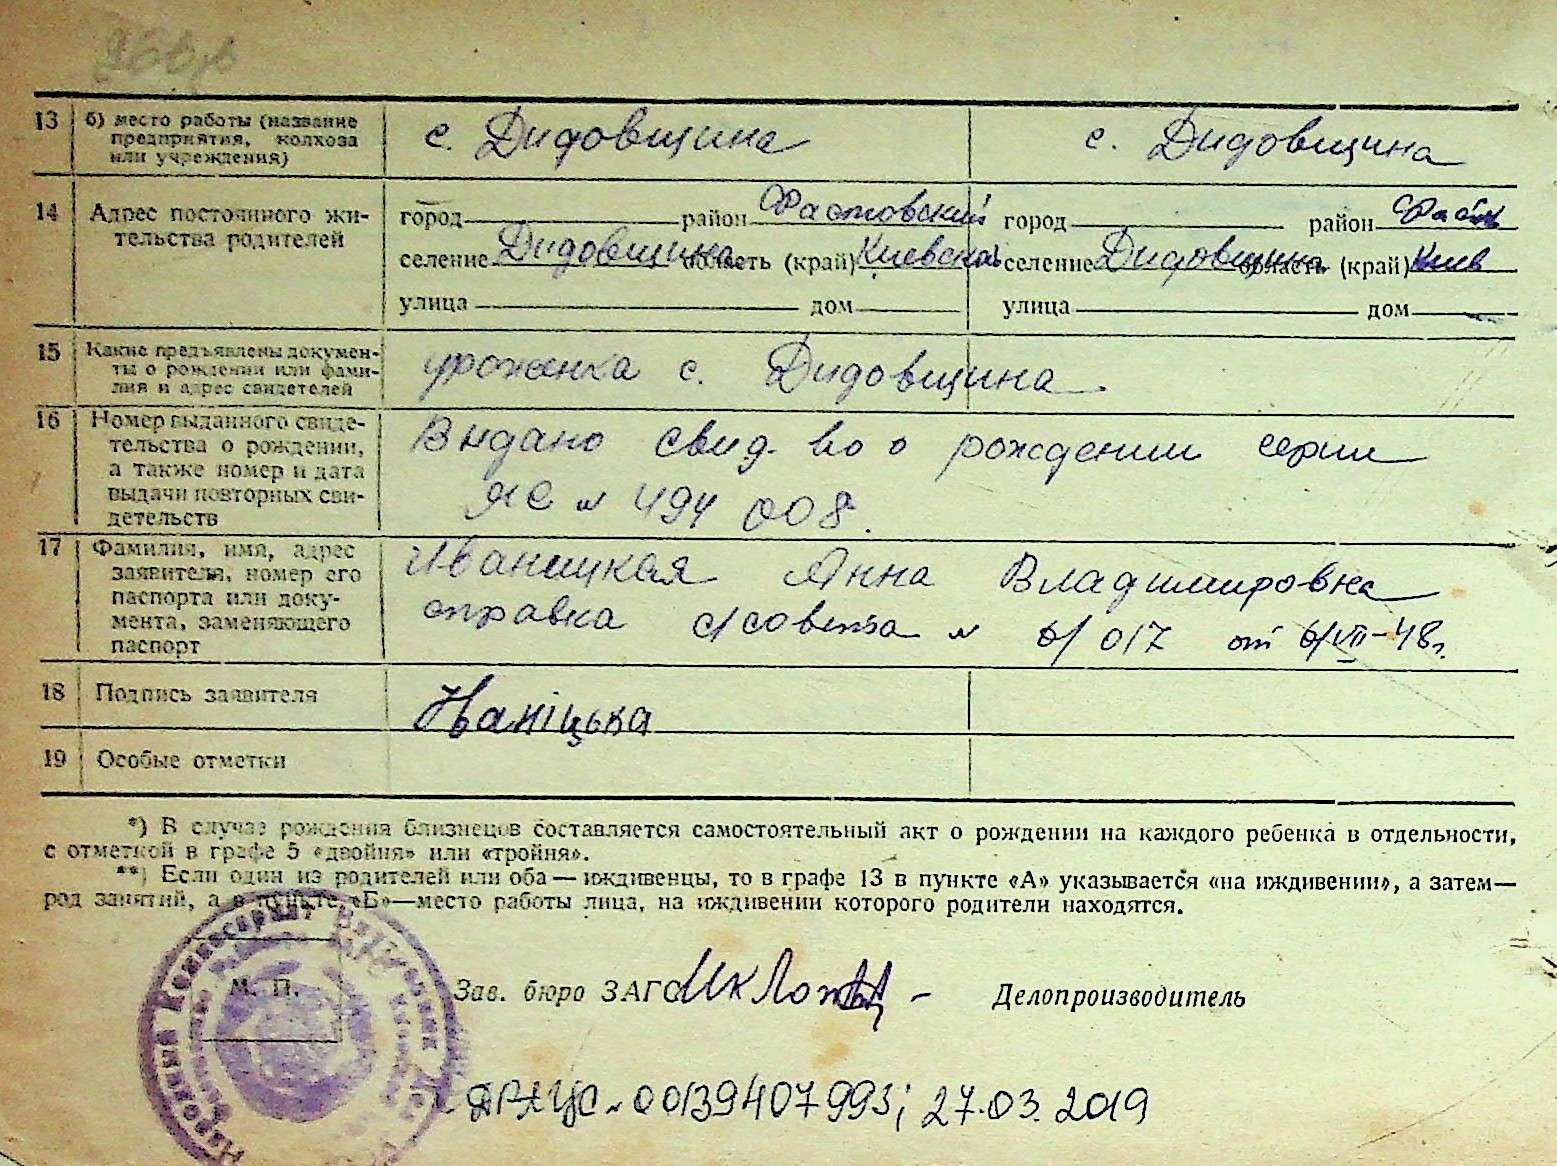 13 б) место работы (название
предприятия, колхоза
или учреждения)
с. Дидовщина
с. Дидовщина
14 Адрес постоянного жи-
тельства родителей
город район Фастовский
селение Дидовщина область (край) Киевская
улица дом
город район Фаст
селение Дидовщина область (край) Киев
улица дом
15 Какие предъявлены докумен-
ты о рождении или фами-
лия и адрес свидетелей
уроженка с. Дидовщина
16 Номер выданного свиде-
тельства о рождении,
а также номер и дата
выдачи повторных сви-
детельств
Выдано свид-во о рождении серии
ЯС № 494008.
17 Фамилия, имя, адрес
заявителя, номер его
паспорта или доку-
мента, заменяющего
паспорт
Иваницкая Анна Владимировна
справка с/совета № б/017 от 6/VII-48г.
18 Подпись заявителя
Іваніцька
19 Особые отметки
*) В случае рождения близнецов составляется самостоятельный акт о рождении на каждого ребенка в отдельности,
с отметкой в графе 5 «двойня» или «тройня».
**) Если один из родителей или оба — иждивенцы, то в графе 13 в пункте «А» указывается «на иждивении», а затем—
род занятий, а в пункте «Б»—место работы лица, на иждивении которого родители находятся.
Народный Комиссариат Внутренних
М. П.
Зав. бюро ЗАГС
Делопроизводитель
ДРАЦС № 00139407993; 27.03.2019